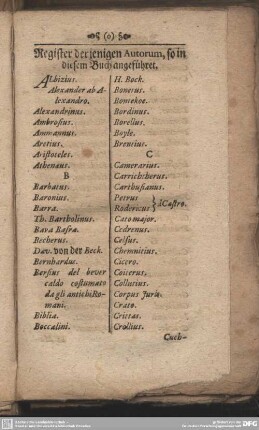 (0)
Register derjenigen Autorum, so in
diesem Buch angeführet.
Albizius.
Alexander ab A-
lexandro.
Alexandrinus.
Ambrosius.
Ammannus.
Aretius.
Aristoteles.
Athenæus.
B
Barbatus.
Baronius.
Barræ.
Th. Bartholinus.
Becherus.
Dav. von der Beck.
Bernhardus.
Bersius del bever
caldo costumato
da gli antichi Ro-
mani.
Biblia.
Boccalini.
H. Bock.
Bonerus.
Bontekoe.
Bordinus.
Borellus.
Boyle.
Brentius.
C
Camerarius.
Carrichterus.
Carthusianus.
Petrus
Rodericus } à Castro.
Cato major.
Cedrenus.
Celsus.
Chemnitius.
Cicero.
Coiterus.
Collutius.
Corpus Juris.
Crato.
Critias.
Crollius.
Cuch-